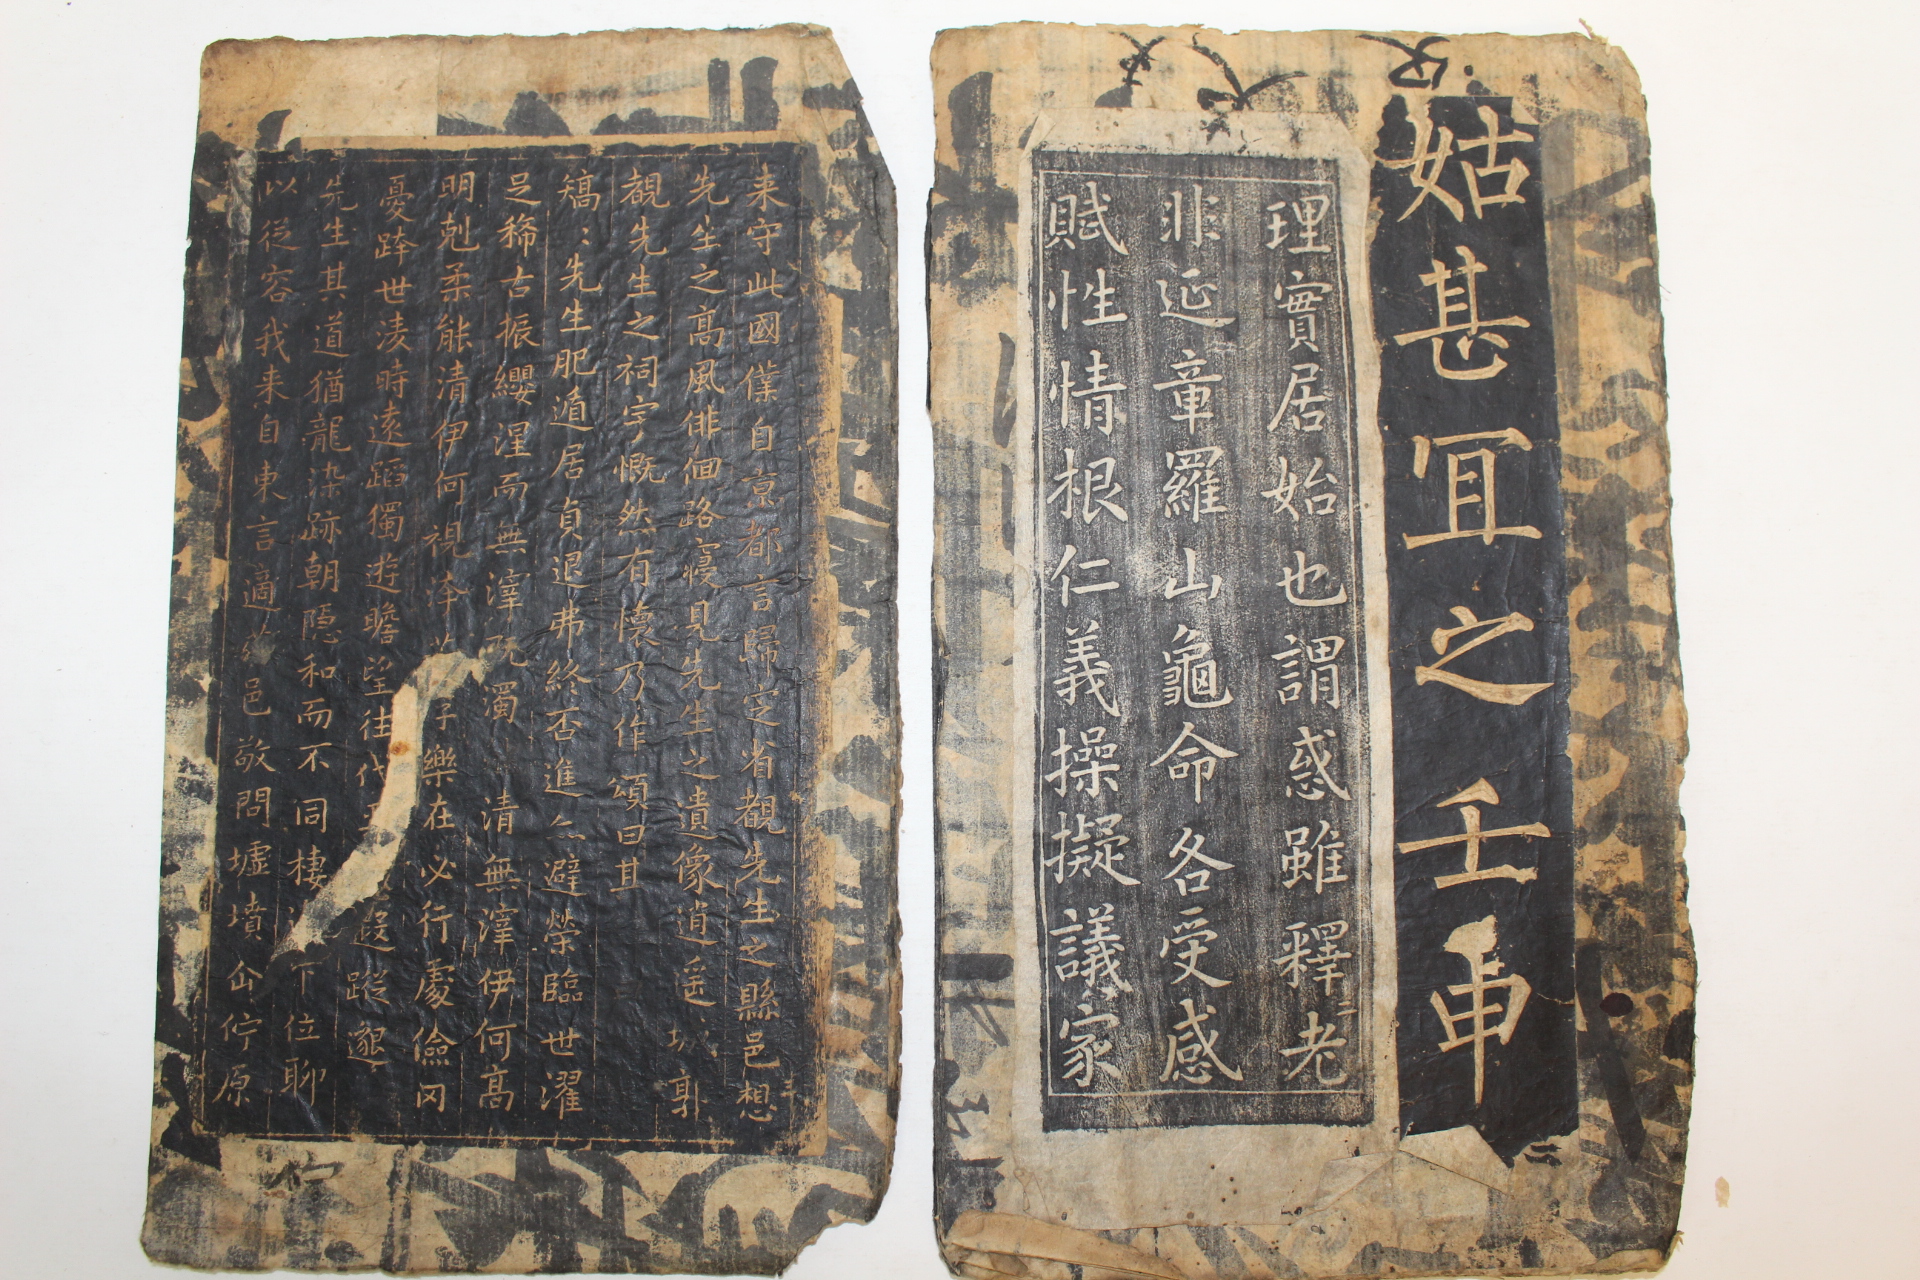 姑甚冝之壬申
理實居始也謂惑雖釋老
二
非延章羅山龜命各受感
賦性情根仁義操擬議家
二
来守此國僕自京都言歸定省覩先生之縣邑想
三
先生之高風俳佪路寝見先生之遺像逍遥城郭
覩先生之祠宇慨然有懐乃作頌曰其
矯〻先生肥遁居貞退弗終否進亦避榮臨世濯
足稀古振纓涅而無滓既濁清無滓伊何高
明剋柔能清伊何視汙子樂在必行處儉罔
憂跨世淩時遠蹈獨遊瞻望往代遐蹤邈
先生其道猶龍染跡朝隐和而不同棲下位聊
以従容我来自東言適茲邑敬問墟墳企佇原